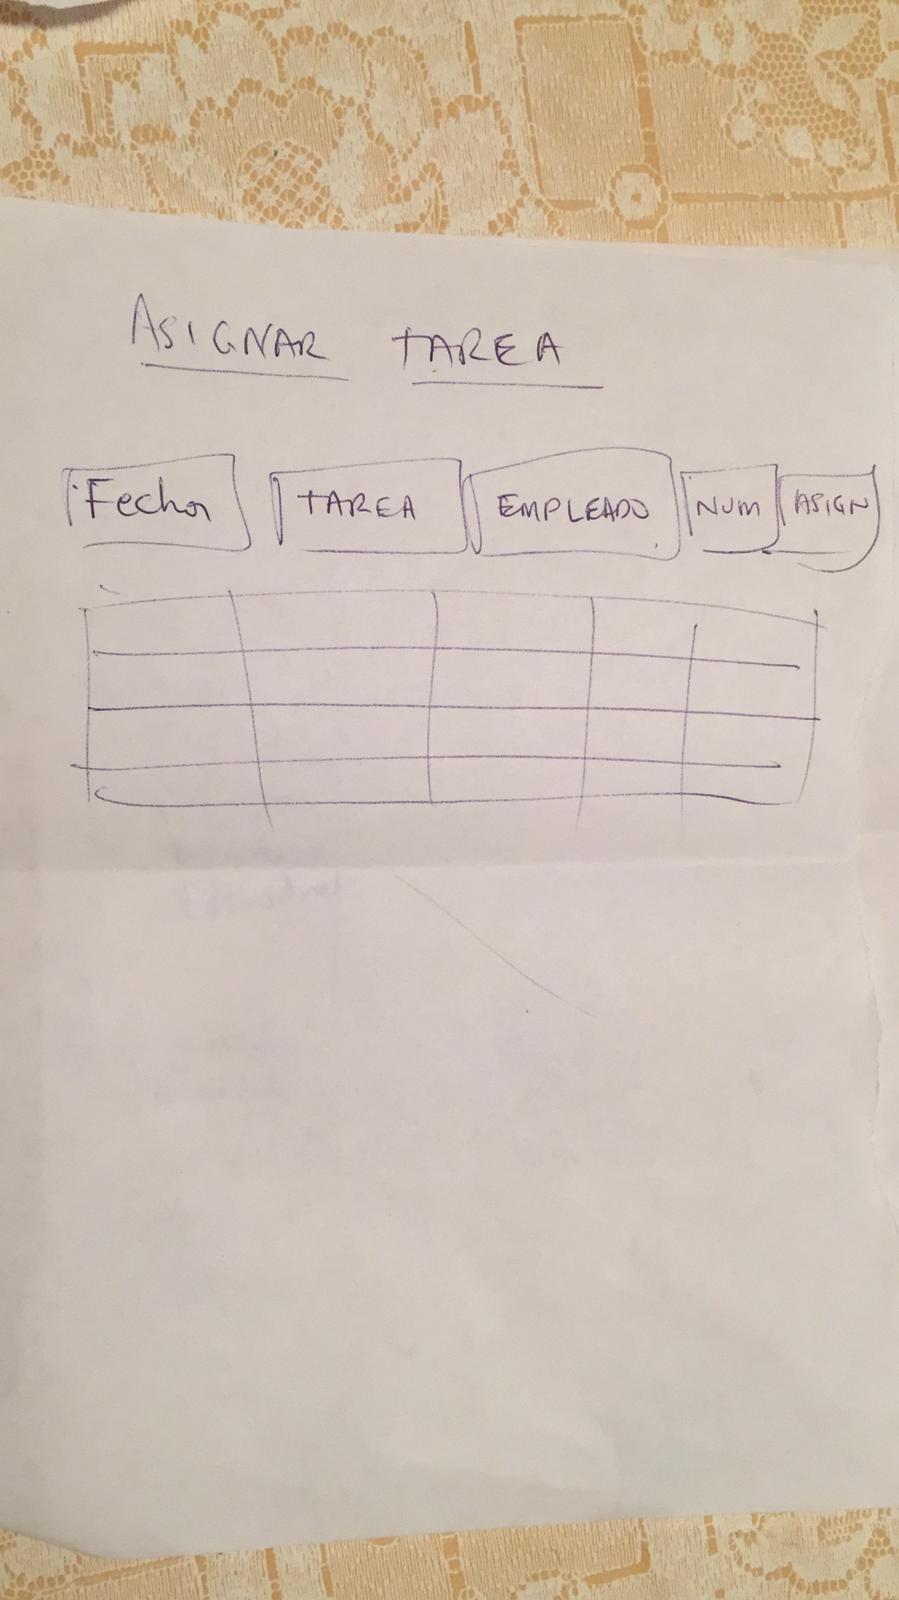 ASIGNAR TAREA
Fecha TAREA EMPLEADO NUM ASIGN